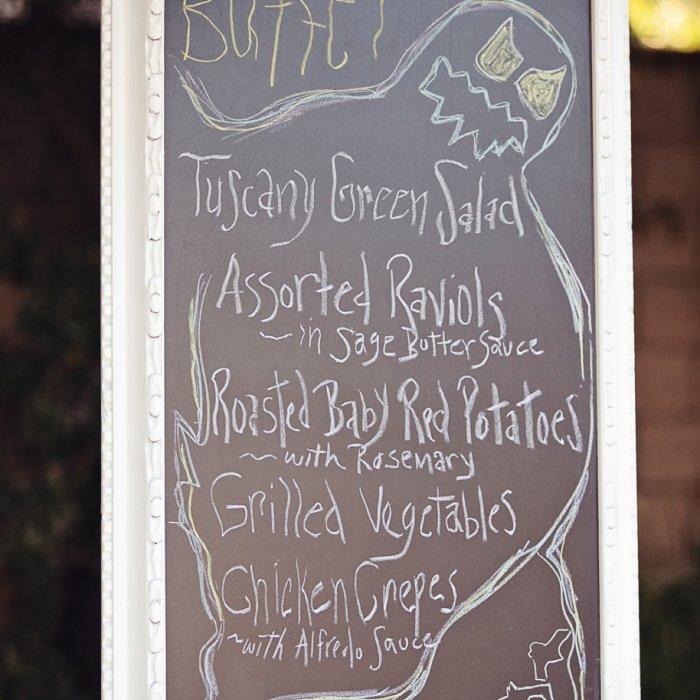 BUFFET
Tuscany Green Salad
Assorted Raviols
~in Sage Butter Sauce
Roasted Baby Red Potatoes
~with Rosemary
Grilled Vegetables
Chicken Crepes
~with Alfredo Sauce